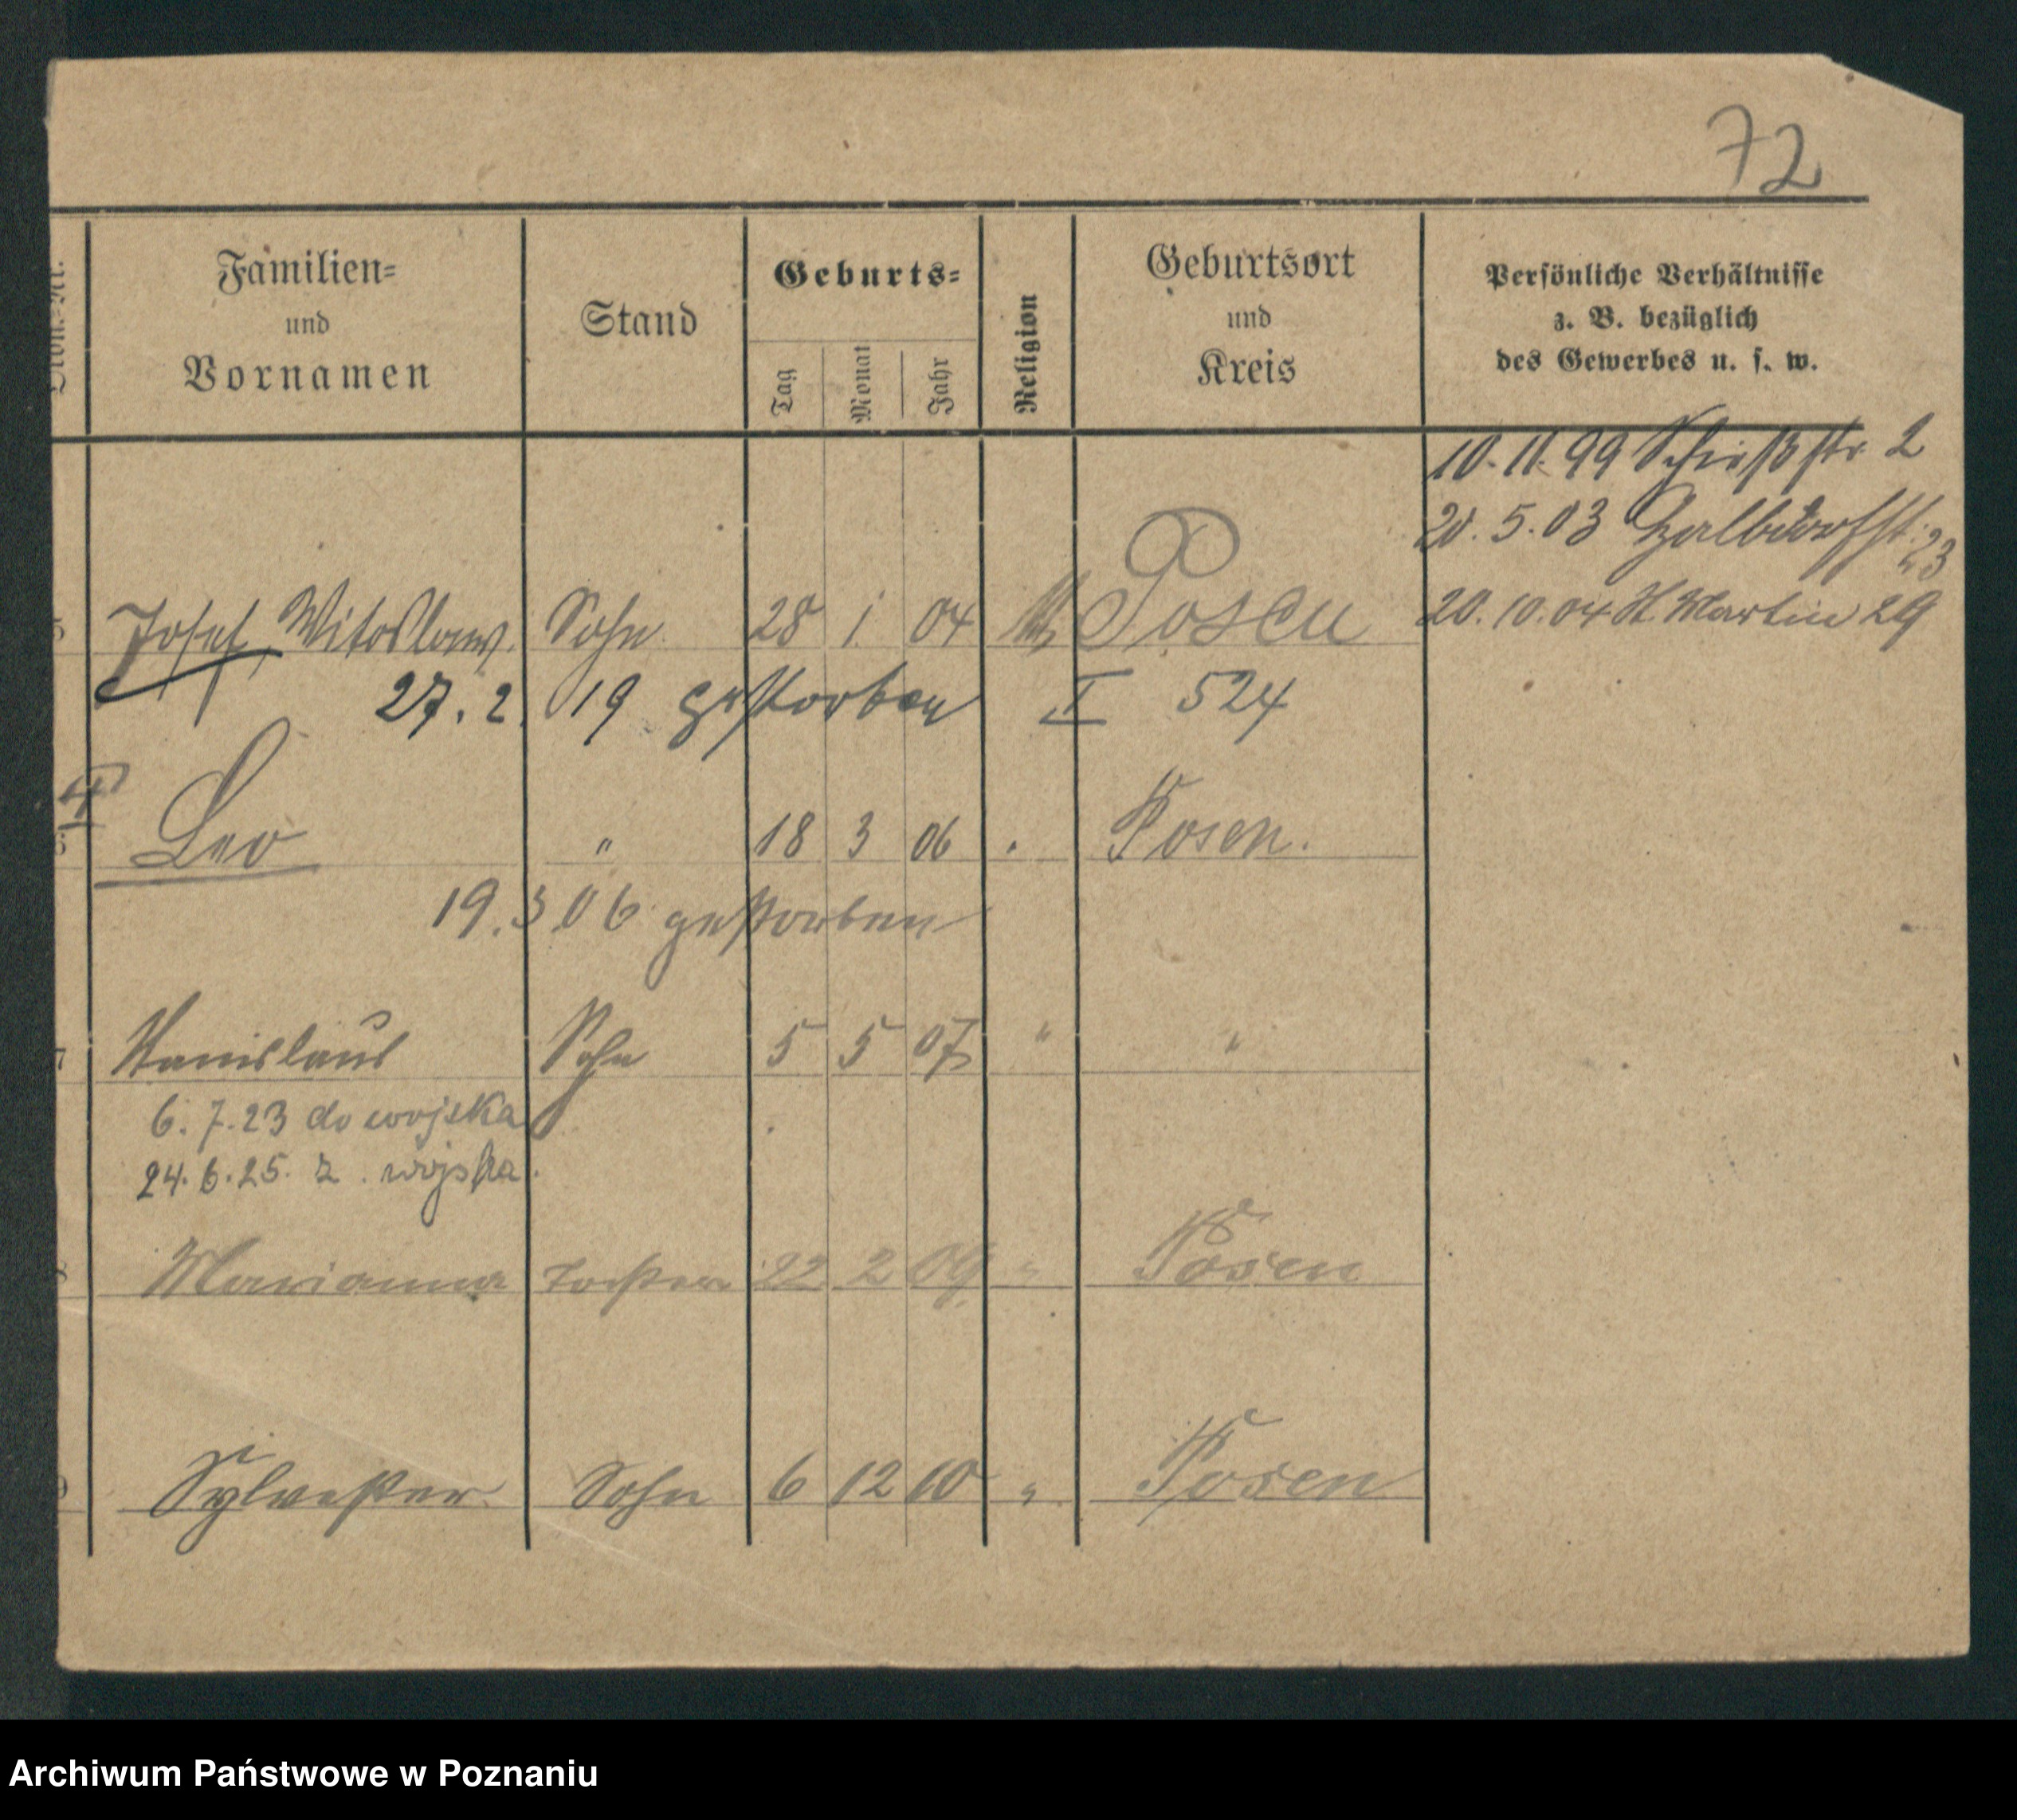 72
Familien=
und
Vornamen
Stand
Geburts=
Tag
Monat
Jahr
Religion
Geburtsort
und
Kreis
Persönliche Verhältnisse
z. B. bezüglich
des Gewerbes u. s. w.
10.11.99 Schießstr 2
20.5.03 Halbdorfst. 23
20.10.04 St. Martin 29
Josef, Witoslaw. Sohn 28 1 04 Posen
27.2.19 gestorben I 524
Leo " 18 3 06 " Posen.
19.3 06 gestorben
Stanislaus Sohn 5 5 07 " "
6.7.23 do wojska
24.6.25. z. wojska.
Marianna Tochter 22 2 09 " Posen
Sylvester Sohn 6 12 10 " Posen
Archiwum Państwowe w Poznaniu